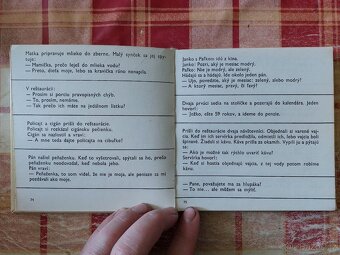 Matka pripravuje mlieko do zberne. Malý synček sa jej spy-
tuje:
— Mamička, prečo leješ do mlieka vodu?
— Preto, dieťa moje, lebo sa kravička ráno nenapila.
V reštaurácii:
— Prosím si porciu pravopisných chýb.
— To, prosím, nemáme.
— Tak prečo ich máte na jedálnom lístku?
Policajt a cigán prišli do reštaurácie.
Policajt si rozkázal cigánsku pečienku.
Cigán nelenil a vraví:
— A mne teda dajte policajta na cibuľke!
Pán našiel peňaženku. Keď to vyšetrovali, spýtali sa ho, prečo
peňaženku neodovzdal, keď nebola jeho.
Pán vraví:
— Peňaženka, to som videl, že nie je moja, ale peniaze sa mi
pozdávali ako moje.
74
Janko s Paľkom idú z kina.
Janko: Pozri, aký je mesiac modrý.
Paľko: Nie je modrý, ale zelený.
Hádajú sa a hádajú. Ide okolo jeden pán.
— Ujo, povedzte, aký je mesiac: zelený, alebo modrý?
— A ktorý mesiac, pravý, či ľavý?
Dvaja prváci sedia na stoličke a pozerajú do kalendára. Jeden
hovorí:
— Ježko, ešte 59 rokov, a ideme do penzie.
Prišli do reštaurácie dvaja návštevníci. Objednali si varené vaj-
cia. Keď im ich servírka predložila, odmietli ich, lebo vajcia boli
spravené. Žiadali si kávu. Káva prišla za okamih. Vypili ju a pýtajú
sa:
— Ako je možné tak rýchlo uvariť kávu?
Servírka hovorí:
— Keď si hostia objednajú vajcia, z tej vody potom robíme
kávu.
— Pane, považujete ma za hlupáka?
— To nie... ale môžem sa mýliť.
75